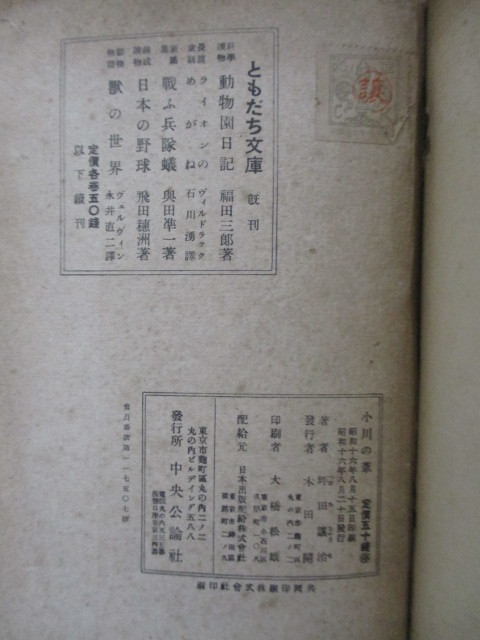 ともだち文庫 既刊
科學讀物 動物園日記 福田三郎著
長篇童話 ライオンのめがね ヴィルドラック 石川湧譯
戰ふ兵隊蟻 奥田準一著
日本の野球 飛田穂洲著
動物物語 獸の世界 ヴェルヴィン 永井直二譯
定價各卷五〇錢
以下續刊
小川の葦 定價五十錢
昭和十六年八月十五日印刷
昭和十六年八月二十日發行
著者 坪田讓治
發行者 木田開
東京市麴町區
丸の内二ノ二
印刷者 大橋松雄
配給元 日本出版配給株式會社
東京市麴町區丸の内二ノ二
丸の内ビルディング五八八
發行所 中央公論社
共同印刷株式會社印刷